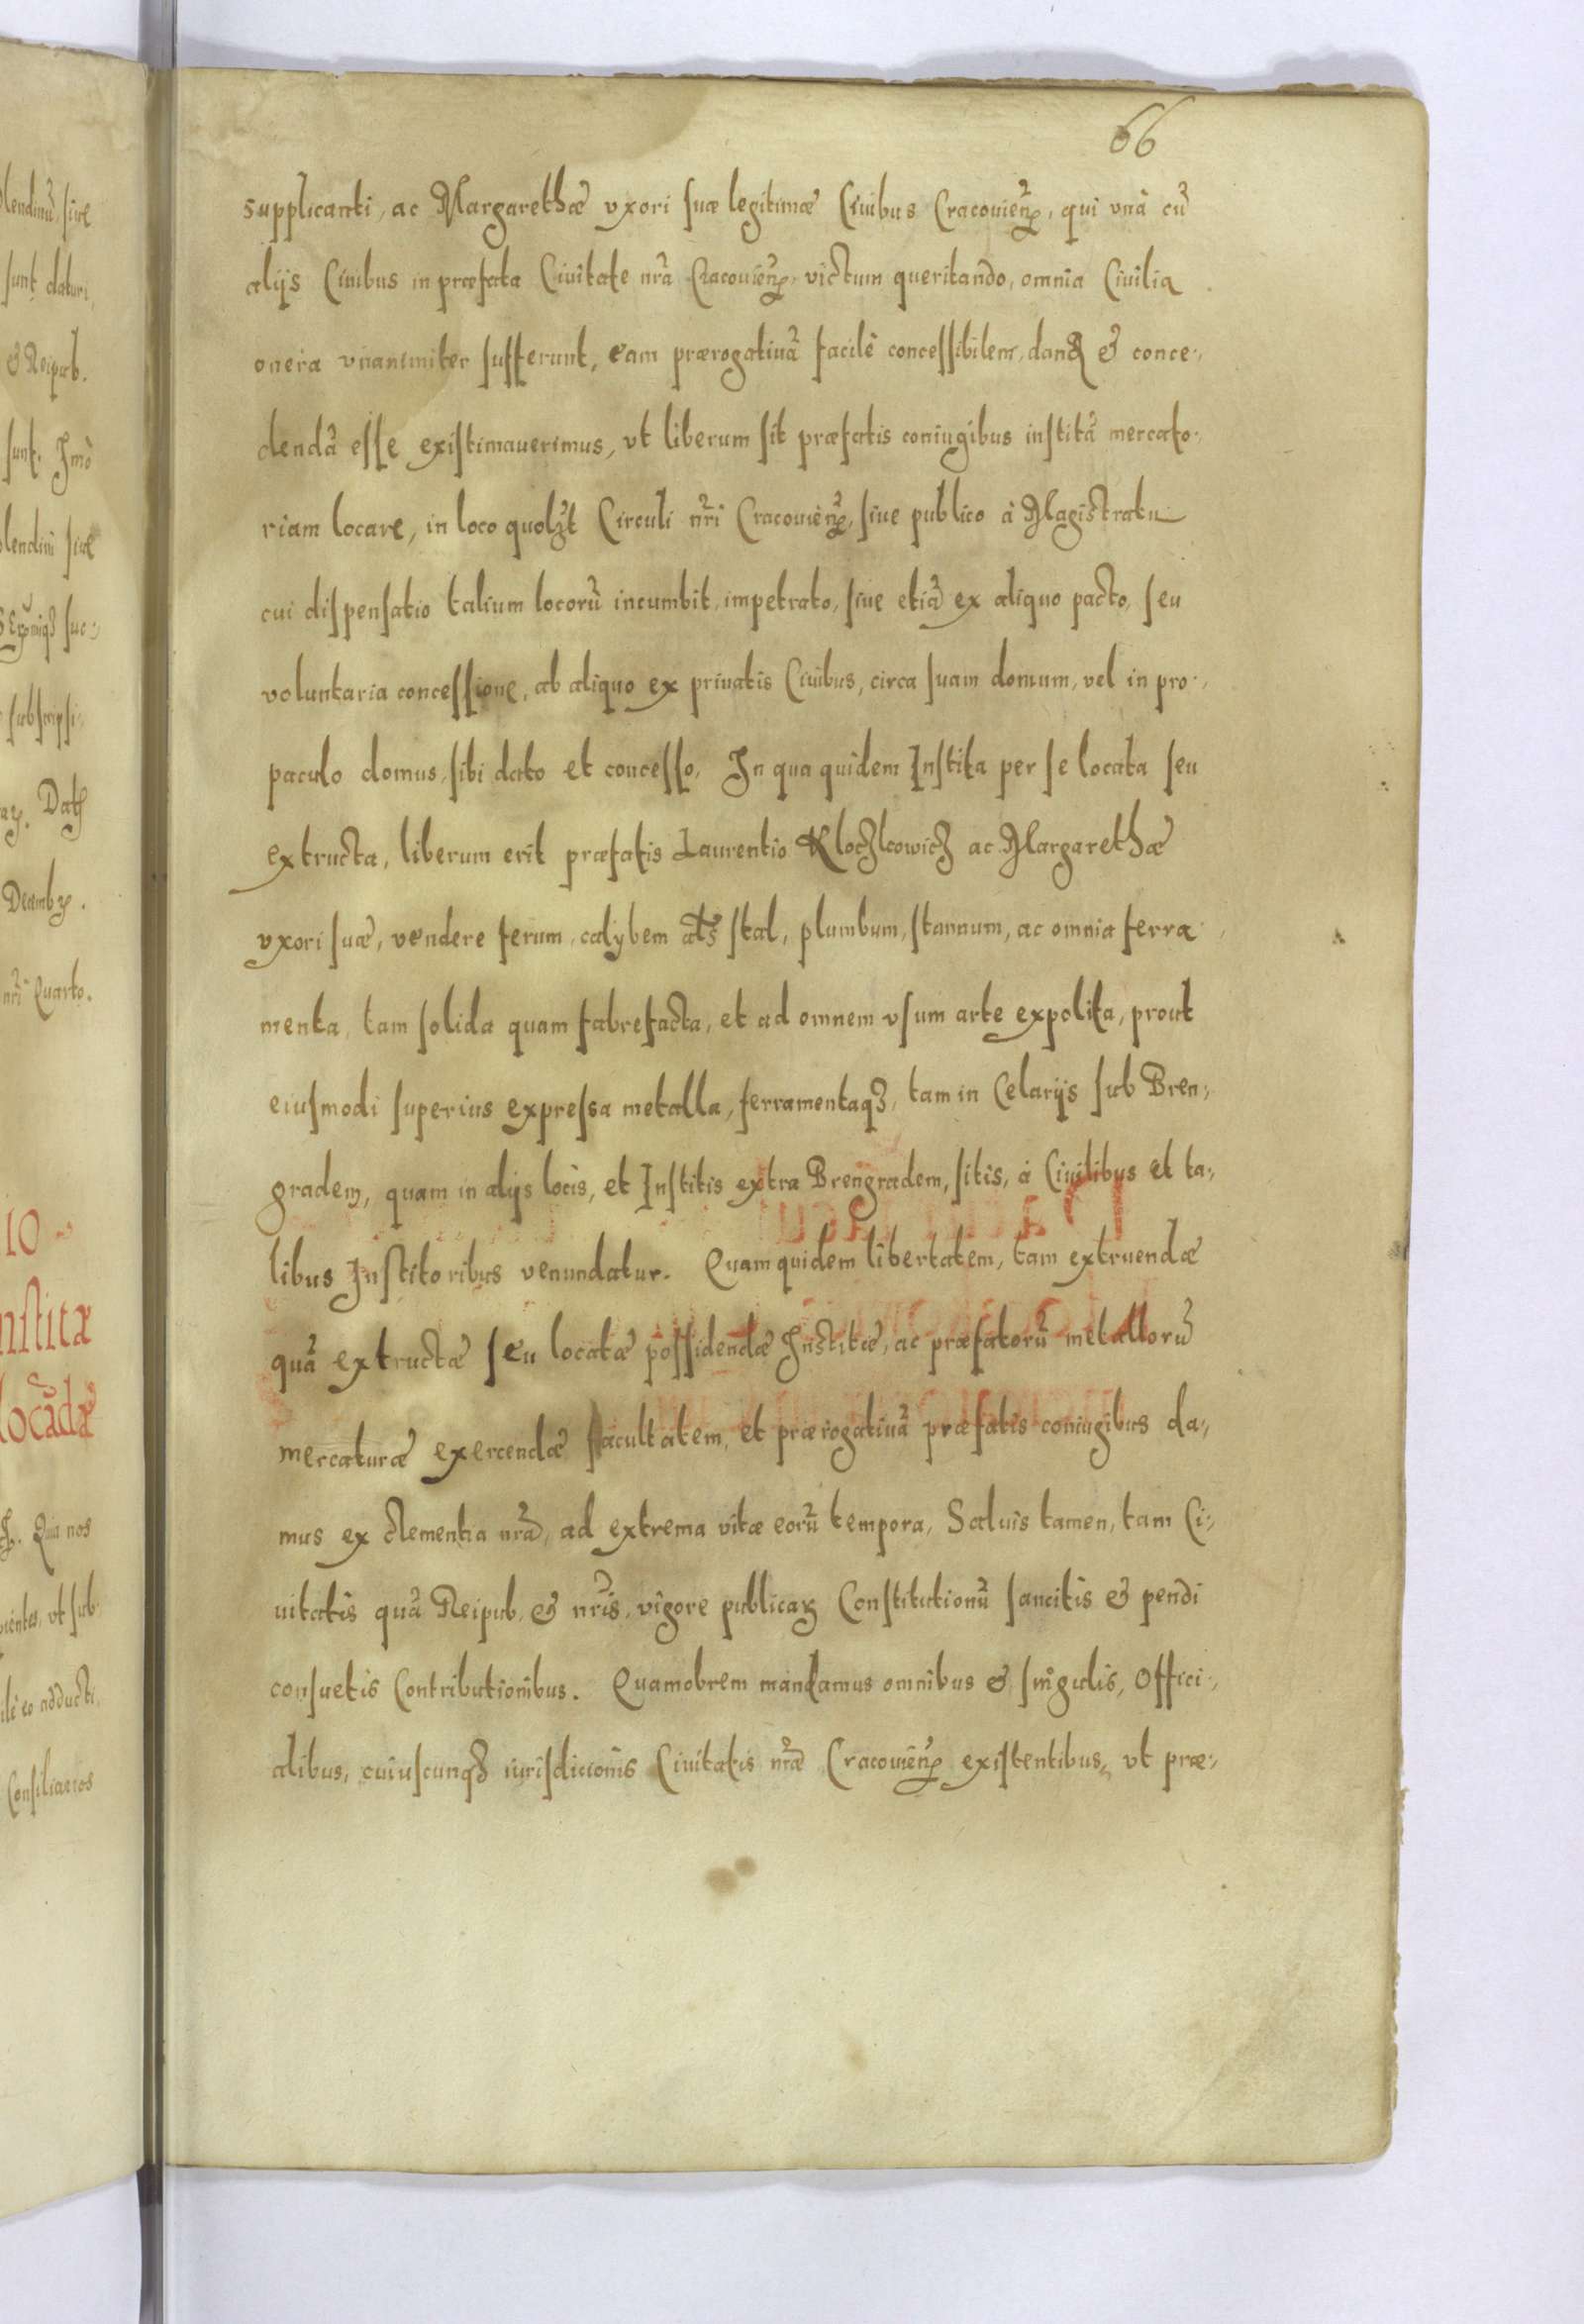 66
supplicanti, ac Margarethæ vxori suæ legitimæ Ciuibus Cracouien̄, qui vnà cũ
alijs Ciuibus in præfata Ciuitate nrã Cracouien̄, victum queritando, omnia Ciuilia
onera vnanimiter sufferunt, eam prærogatiuã facilè concessibilem, dandã & conce-,
dendã esse existimauerimus, vt liberum sit præfatis coniugibus institã mercato-,
riam locare, in loco quolꝫt Circuli nrĩ Cracouien̄, siue publico à Magistratu
cui dispensatio talium locorũ incumbit, impetrato, siue etiã ex aliquo pacto, seu
voluntaria concessione, ab aliquo ex priuatis Ciuibus, circa suam domum, vel in pro-,
paculo domus, sibi dato et concesso, In qua quidem Instita per se locata seu
extructa, liberum erit præfatis Laurentio Kloczkowicz ac Margarethæ
vxori suæ, vendere ferum, calybem als stal, plumbum, stannum, ac omnia ferra-,
menta, tam solida quam fabrefacta, et ad omnem vsum arte expolita, prout
eiusmodi superius expressa metalla, ferramentaqꝫ, tam in Celarijs sub Bren-,
gradem, quam in alijs locis, et Institis extra Brengradem, sitis, à Ciuilibus et ta-,
libus Institoribus venundatur. Quam quidem libertatem, tam extruendæ
quã extructæ seu locatæ possidendæ Institæ, ac præfatorũ metallorũ
mercaturæ exercendæ facultatem, et prærogatiuã præfatis coniugibus da-,
mus ex clementia nrã, ad extrema vitæ eorũ tempora, Saluis tamen, tam Ci-,
uitatis quã Reipub, & nrĩs, vigore publicaꝝ Constitutionũ sancitis & pendi
consuetis Contributionibus. Quamobrem mandamus omnibus & singulis, Offici-,
alibus, cuiuscunqꝫ iurisdicionis Ciuitatis nræ̃ Cracouien̄ existentibus, vt præ-,